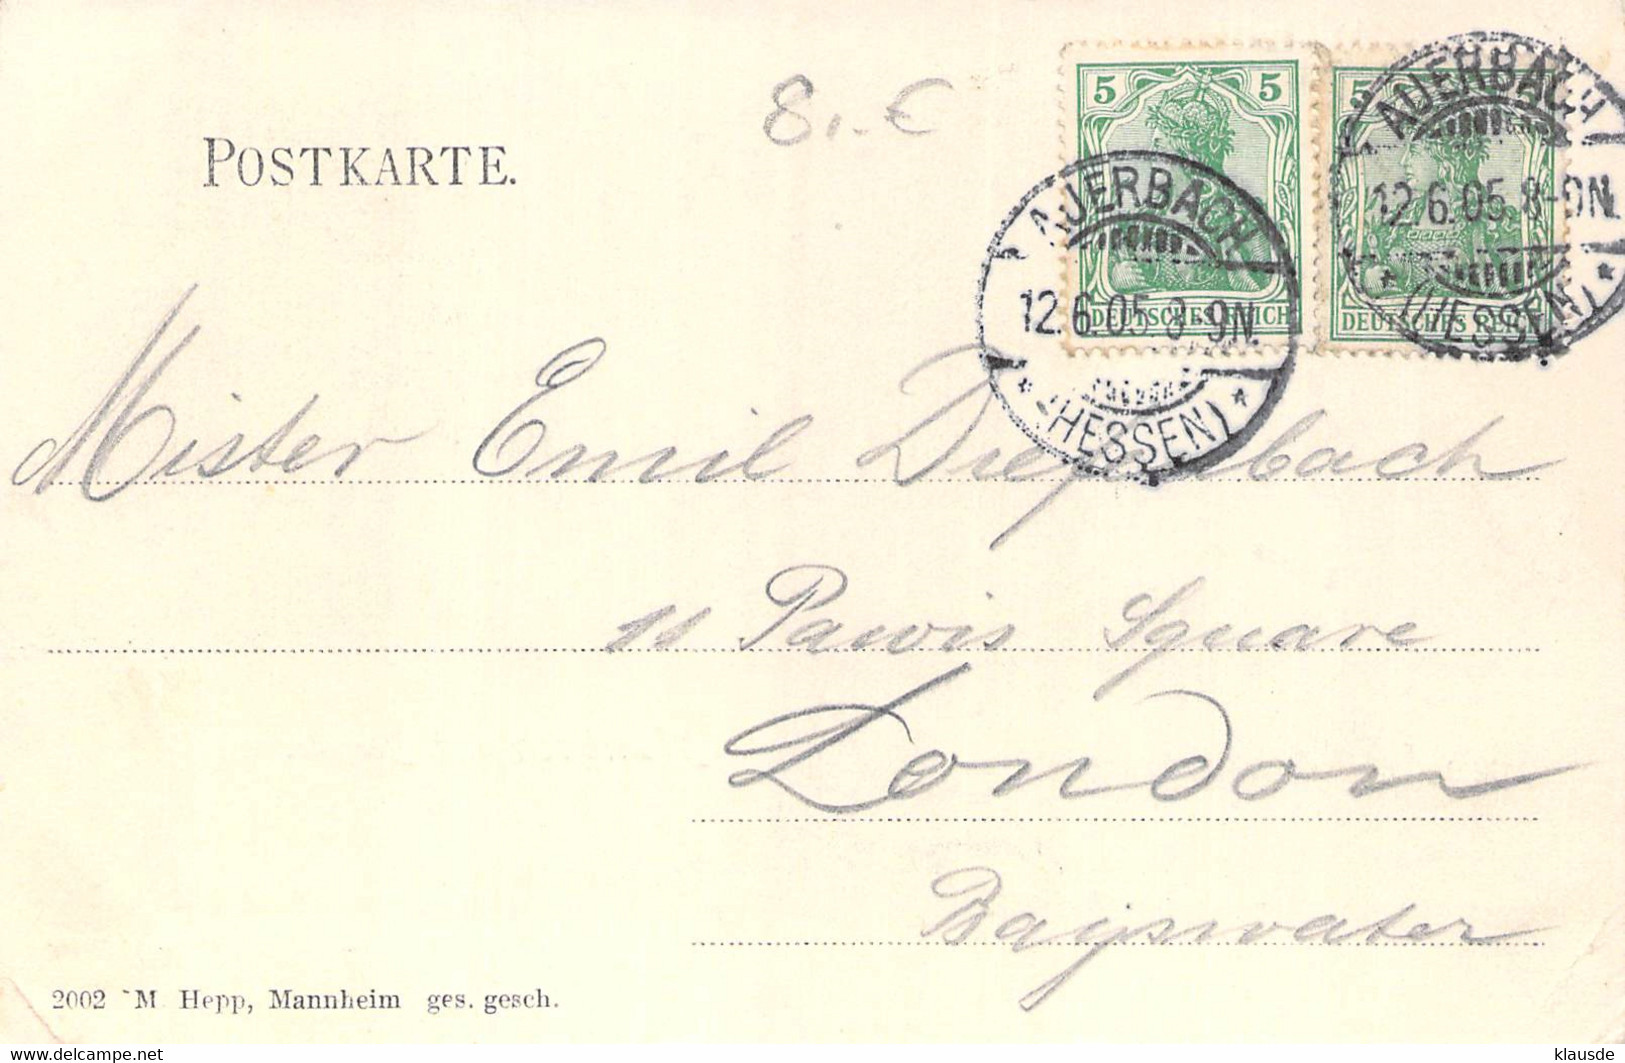 8,-€
POSTKARTE.
5 5
DEUTSCHES REICH
5
DEUTSCHES REICH
AUERBACH
12.6.05 8-9N.
* (HESSEN) *
AUERBACH
12.6.05 8-9N.
* (HESSEN) *
Mister Emil
11 Square
London
Bayswater
2002 M. Hepp, Mannheim ges. gesch.
klausde